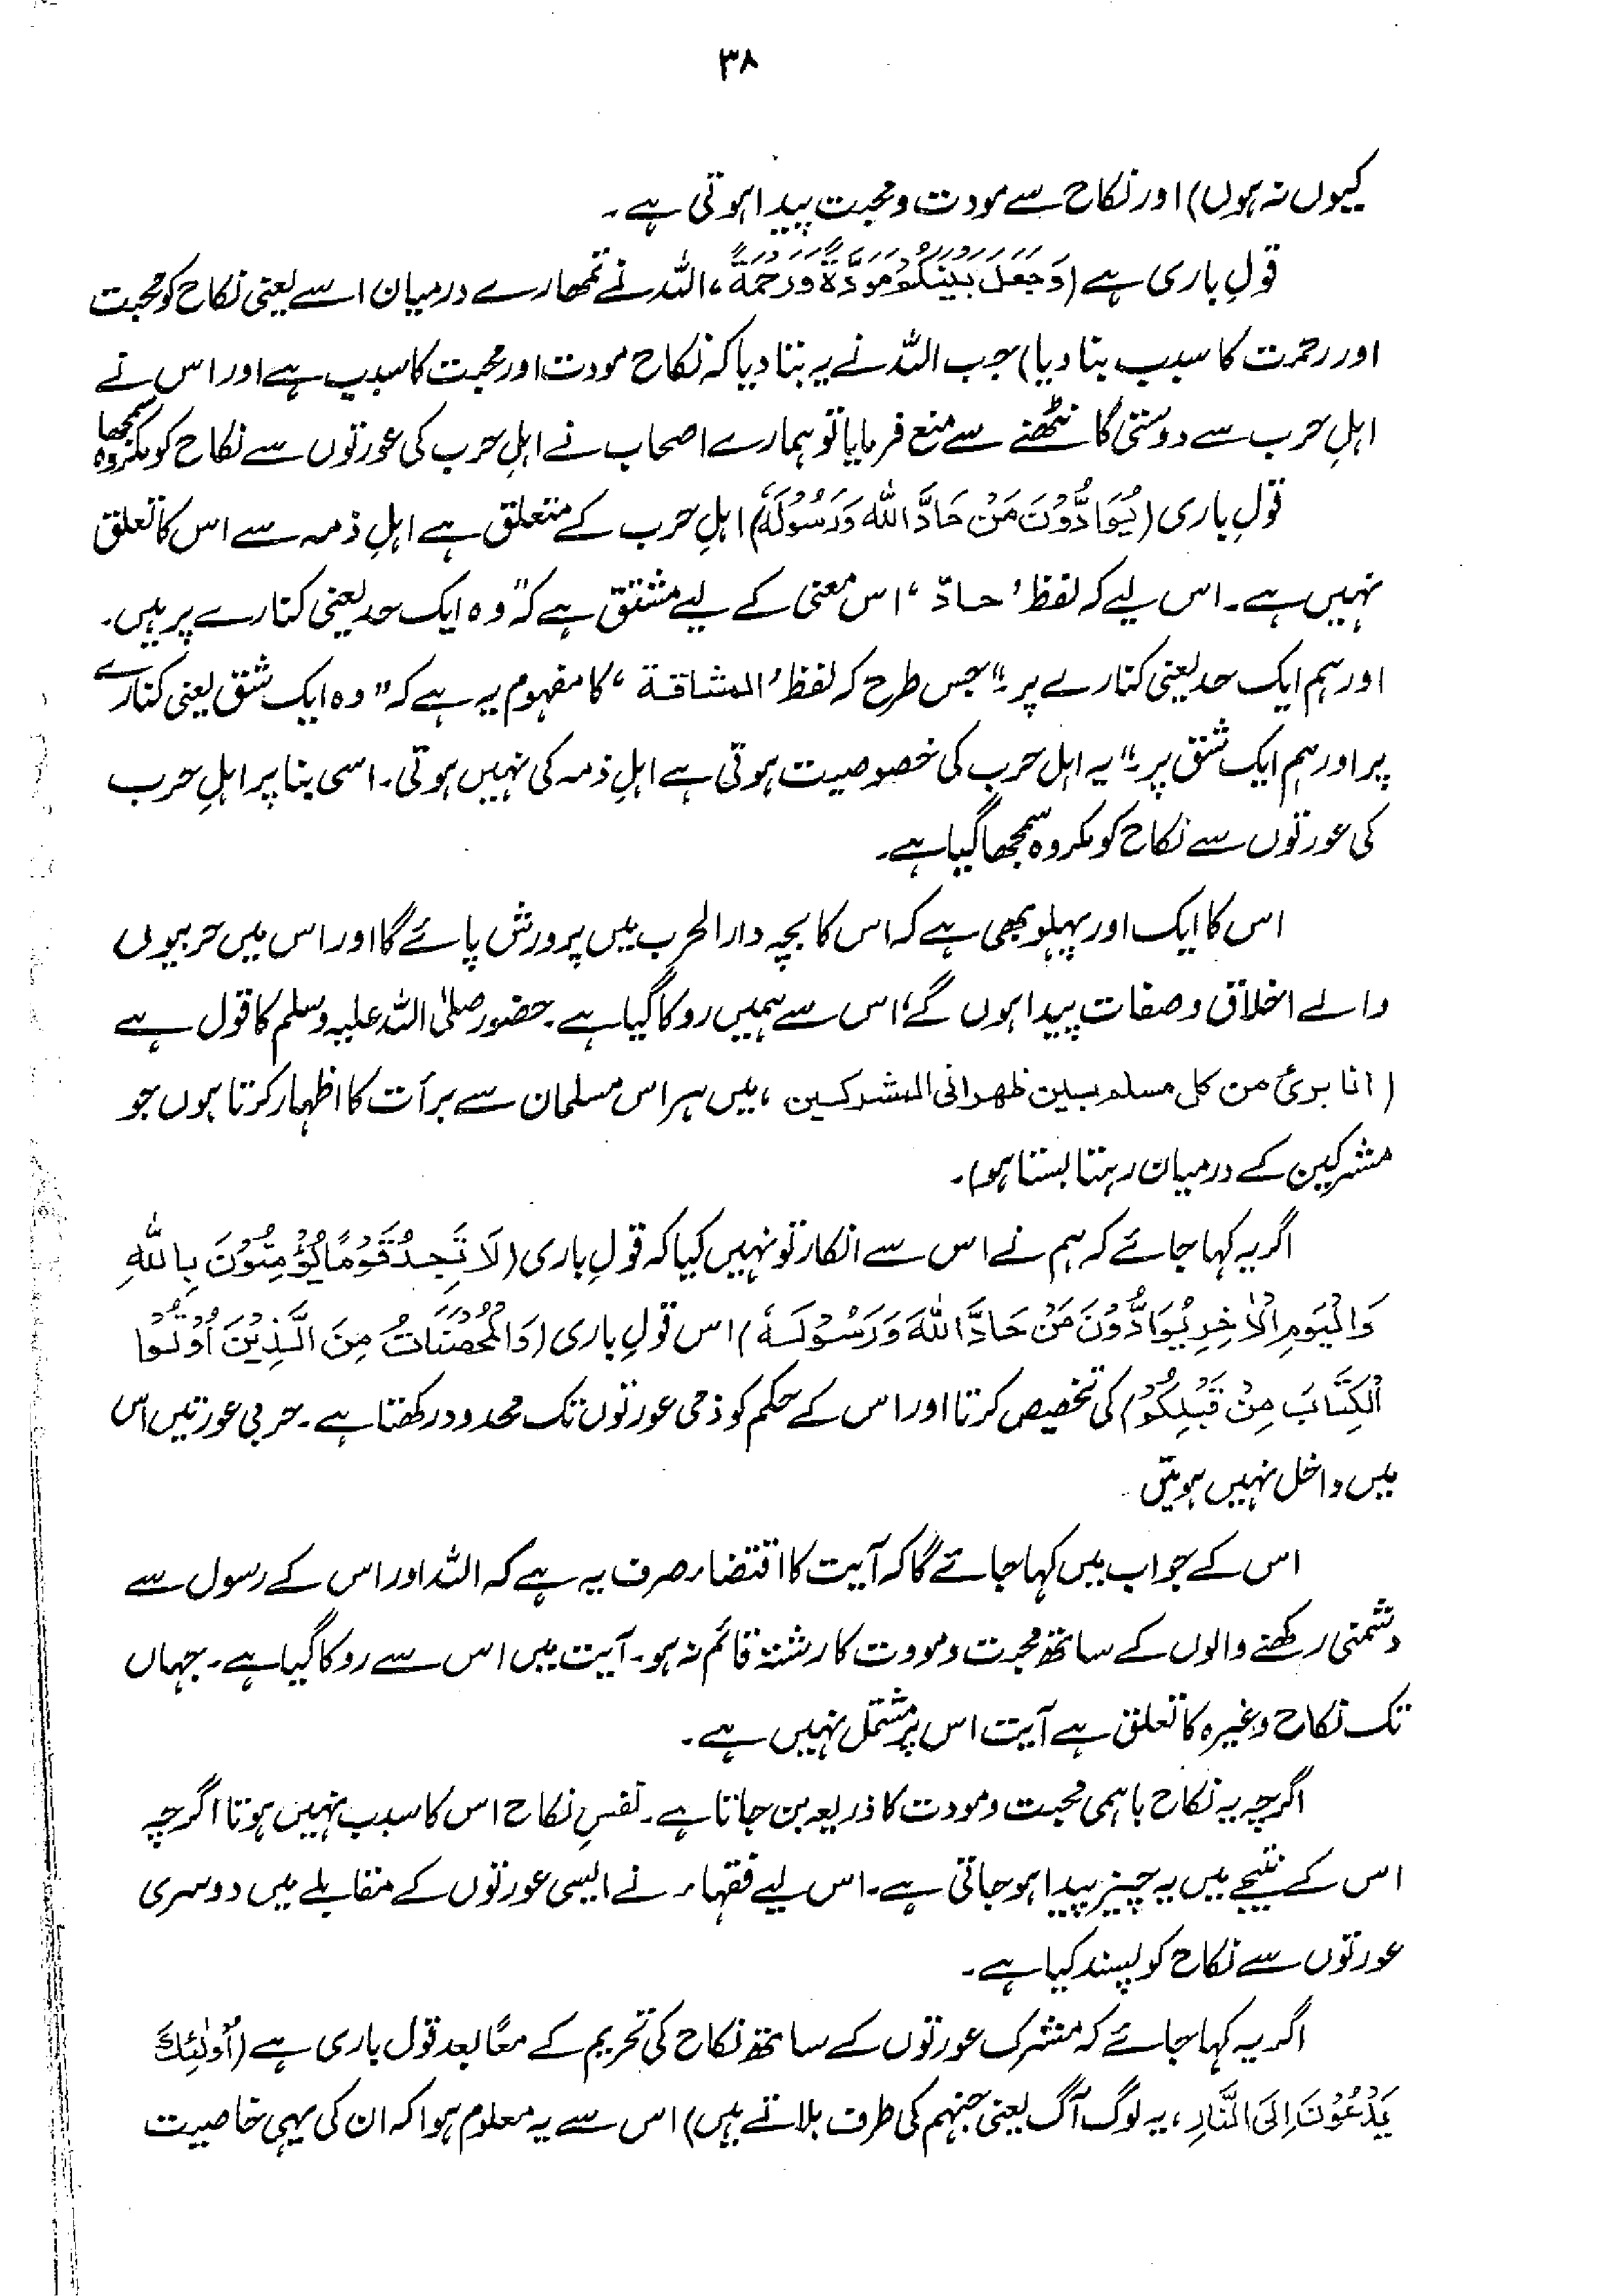 ۳۸
کیوں نہ ہوں) اور نکاح سے مودت و محبت پیدا ہوتی ہے۔
قولِ باری ہے (وَجَعَلَ بَيْنَكُمْ مَوَدَّةً وَرَحْمَةً، اللہ نے تمھارے درمیان اسے یعنی نکاح کو محبت
اور رحمت کا سبب بنا دیا) جب اللہ نے یہ بتا دیا کہ نکاح مودت اور محبت کا سبب ہے اور اس نے
اہلِ حرب سے دوستی گانٹھنے سے منع فرمایا تو ہمارے اصحاب نے اہلِ حرب کی عورتوں سے نکاح کو مکروہ سمجھا
قولِ باری (يُوَادُّوْنَ مَنْ حَادَّ اللهَ وَرَسُوْلَهٗ) اہلِ حرب کے متعلق ہے اہلِ ذمہ سے اس کا تعلق
نہیں ہے۔ اس لیے کہ لفظ ’حادّ‘ اس معنی کے لیے مشتق ہے کہ "وہ ایک حد یعنی کنارے پر ہیں۔
اور ہم ایک حد یعنی کنارے پر۔" جس طرح کہ لفظ ’المشاقة‘ کا مفہوم یہ ہے کہ "وہ ایک شق یعنی کنارے
پر اور ہم ایک شق پر۔" یہ اہل حرب کی خصوصیت ہوتی ہے اہلِ ذمہ کی نہیں ہوتی۔ اسی بنا پر اہلِ حرب
کی عورتوں سے نکاح کو مکروہ سمجھا گیا ہے۔
اس کا ایک اور پہلو بھی ہے کہ اس کا بچہ دار الحرب میں پرورش پائے گا اور اس میں حربیوں
والے اخلاق و صفات پیدا ہوں گے، اس سے ہمیں روکا گیا ہے۔ حضور صلی اللہ علیہ وسلم کا قول ہے
(انا بریٔ من کل مسلم بین ظهرانی المشرکین، میں ہر اس مسلمان سے برأت کا اظہار کرتا ہوں جو
مشرکین کے درمیان رہتا بستا ہو)۔
اگر یہ کہا جائے کہ ہم نے اس سے انکار تو نہیں کیا کہ قولِ باری (لَا تَجِدُ قَوْمًا يُّؤْمِنُوْنَ بِاللهِ
وَالْيَوْمِ الْاٰخِرِ يُوَادُّوْنَ مَنْ حَادَّ اللهَ وَرَسُوْلَهٗ) اس قولِ باری (وَالْمُحْصَنَاتُ مِنَ الَّذِيْنَ اُوْتُوا
الْكِتَابَ مِنْ قَبْلِكُمْ) کی تخصیص کرتا اور اس کے حکم کو ذمی عورتوں تک محدود رکھتا ہے۔ حربی عورتیں اس
میں داخل نہیں ہوتیں
اس کے جواب میں کہا جائے گا کہ آیت کا اقتضاء صرف یہ ہے کہ اللہ اور اس کے رسول سے
دشمنی رکھنے والوں کے ساتھ محبت و مودت کا رشتہ قائم نہ ہو۔ آیت میں اس سے روکا گیا ہے۔ جہاں
تک نکاح وغیرہ کا تعلق ہے آیت اس پر مشتمل نہیں ہے۔
اگرچہ یہ نکاح باہمی محبت و مودت کا ذریعہ بن جاتا ہے۔ نفسِ نکاح اس کا سبب نہیں ہوتا اگرچہ
اس کے نتیجے میں یہ چیز پیدا ہو جاتی ہے۔ اس لیے فقہاء نے ایسی عورتوں کے مقابلے میں دوسری
عورتوں سے نکاح کو پسند کیا ہے۔
اگر یہ کہا جائے کہ مشرک عورتوں کے ساتھ نکاح کی تحریم کے معًا بعد قول باری ہے (اُولٰئِكَ
يَدْعُوْنَ اِلَى النَّارِ، یہ لوگ آگ یعنی جہنم کی طرف بلاتے ہیں) اس سے یہ معلوم ہوا کہ ان کی یہی خاصیت